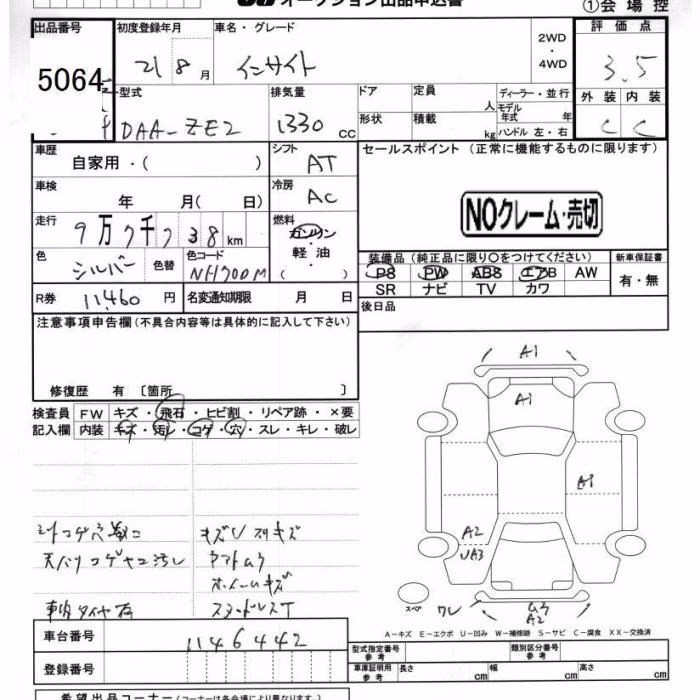 オークション出品申込書
①会場控
出品番号
初度登録年月
車名・グレード
2WD
・
4WD
評価点
5064
21 8月
インサイト
3.5
型式
排気量
ドア
定員
人
ディーラー・並行
外装 内装
DAA-ZE2
1330 cc
形状
積載
kg
モデル年式 年
ハンドル 左・右
C C
車歴
自家用・( )
シフト
AT
セールスポイント (正常に機能するものに限ります)
車検
年 月( 日)
冷房
AC
NOクレーム・売切
走行
9万7千738km
燃料
ガソリン
・
軽油
・
( )
色
シルバー
色替
色コード
NH700M
装備品(純正品に限り○をつけてください)
新車保証書
PS PW ABS エアB AW
有・無
SR ナビ TV カワ
R券
11,460円
名変通知期限 月 日
後日品
注意事項申告欄(不具合内容等は具体的に記入して下さい)
修復歴 有 〔箇所 〕
検査員
FW キズ・飛石・ヒビ割・リペア跡・×要
記入欄
内装 キズ・汚レ・コゲ・穴・スレ・キレ・破レ
A1
A1
A1
A2
UA3
シートコゲ穴
キズ
天バリコゲヤニ汚レ
ヤマトムラ
ホイールキズ
車内タイヤ有
スタッドレスT
スペア
ワレ
ムラ
A2
A-キズ E-エクボ U-凹み W-補修跡 S-サビ C-腐食 XX-交換済
車台番号
1146442
型式指定番号
参考
類別区分番号
参考
登録番号
車庫証明用
参考
長さ cm
幅 cm
高さ cm
希望出品コーナー(コーナーは各会場により異なります。)